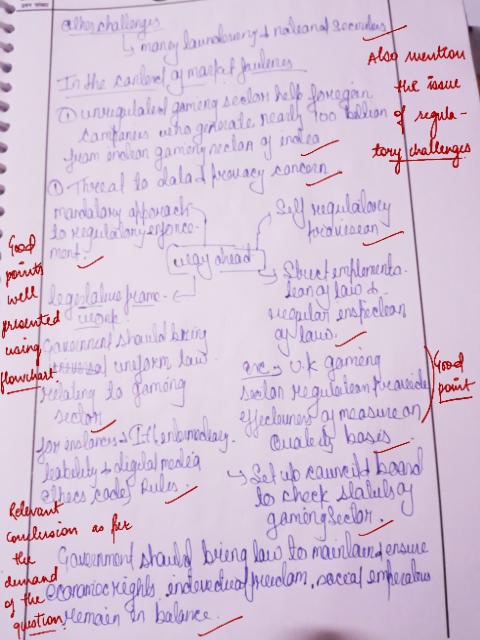 Other challenges
↳ money laundering & national securities
In the context of market failures
① unregulated gaming sector help foreign
companies who generate nearly 700 billion
from indian gaming sector of india
① Threat to data & privacy concern
mandatory approach
to regulatory enforce-
ment.
Self regulatory
provision
way ahead
Strict implementa-
tion of law &
regular inspection
of law.
legislative frame-
work
Government should bring
uniform law
relating to gaming
sector
for instances IT intermediary
liability & digital media
ethics code Rules
U.K gaming
sector regulation provide
effectiveness of measure on
Quaterly basis
↳ Set up council & board
to check status of
gaming sector.
Government should bring law to maintain & ensure
economic rights, individual freedom, social
remain in balance.
Also mention
the issue
of regula-
tory challenges
Good
points
well
presented
using
flowchart
Good
point
Relevant
conclusion as per
the
demand
of the
question